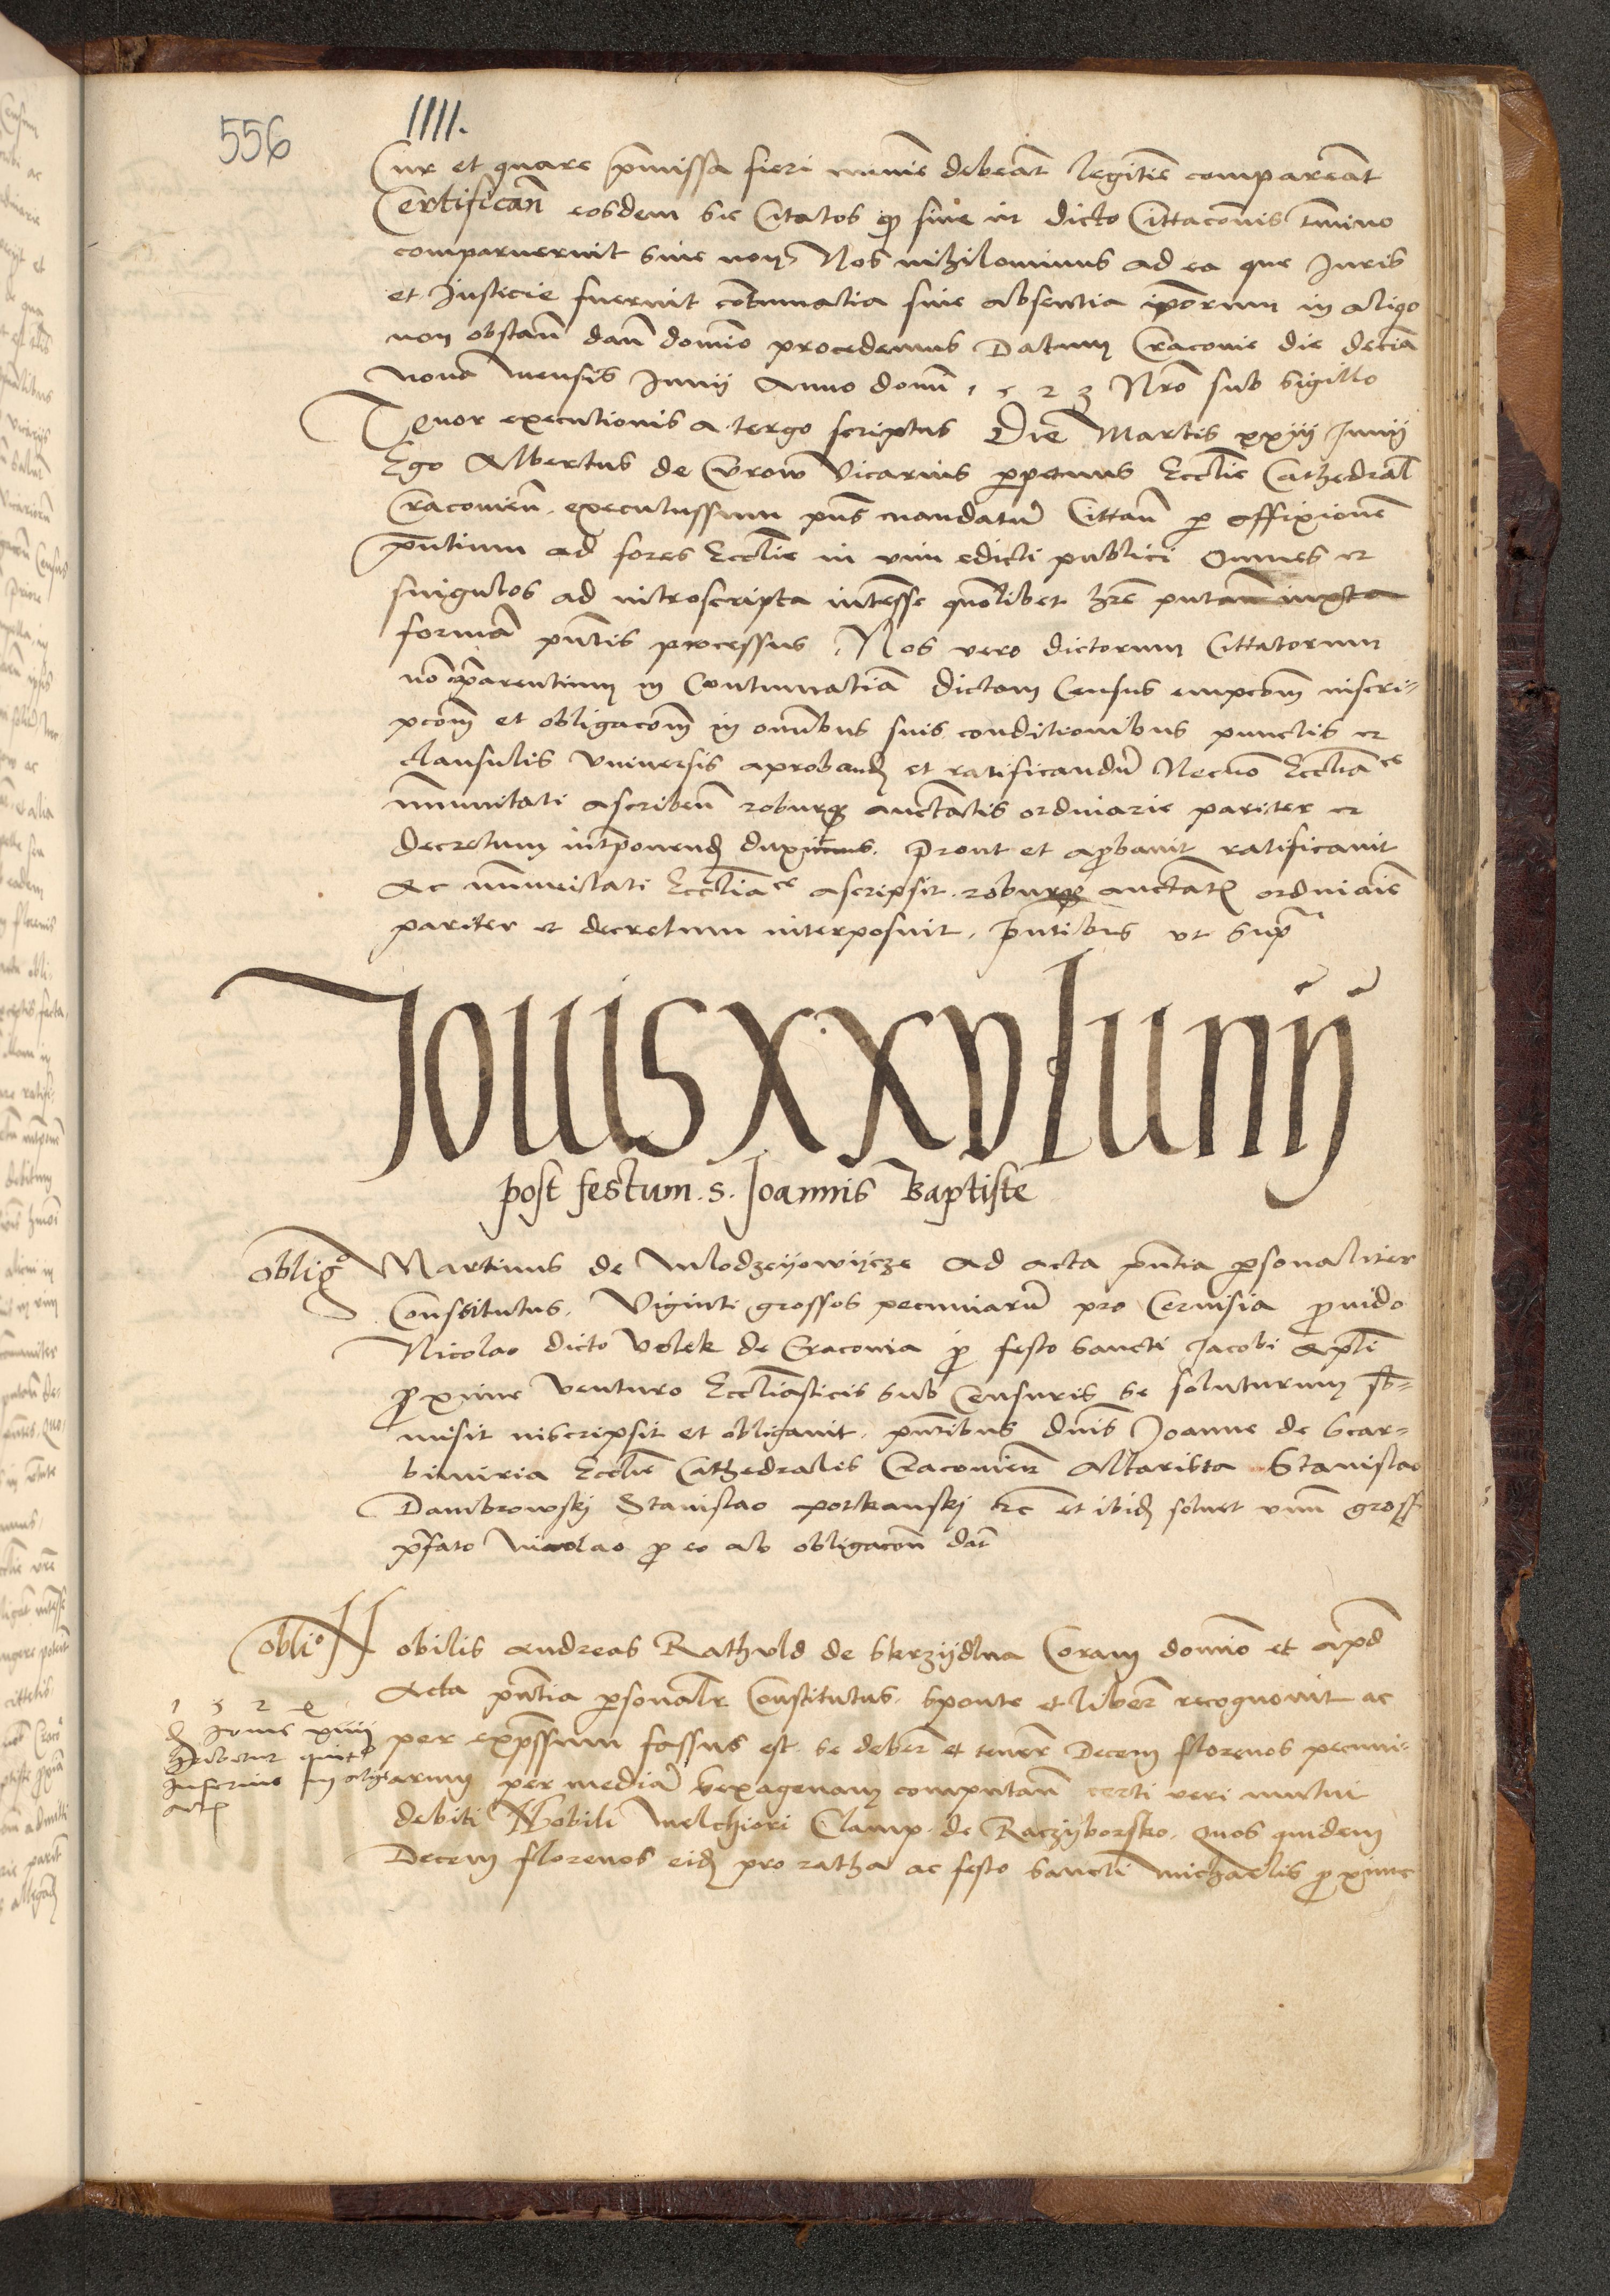 556
IIII.
Cur et quare p̄missa fieri minīe debeāt legitīe compareāt
Certificań eosdem sic Citatos qz siue in dicto Cittacōnis t̄mino
comparuerint siue non, Nos nihilominus ad ea que Juris
et Justicie fuerint cōtumatia siue absentia ip̄orum in aliqo
non obstań dań domīo procedemus Datum Cracouie die decīa
nona mensis Junij Anno domī 1523 Nr̄o sub sigillo
Tenor executionis a tergo scriptus Die Martis xxiij Junij
Ego Albertus de Vicarius ꝑpetuus Eccl̄ie Cathedral
Cracouień. executus sum p̄ns mandatū Cittań ꝑ affixionē
p̄ntium ad fores Eccl̄ie in vim edicti publici Omnes et
singulos ad introscripta int̄esse quōlibet hr̄e putań iuxta
formā p̄ntis processus, Nos vero dictorum Cittatorum
nō cōparentium in Contumatiā dictam Census empcōm inscri-
pcōm et obligacōm in omībus suis conditionibus punctis et
clausulis vniuersis aproband et ratificandū Necnō Eccl̄iaᶜᵉ
im̄unitati ascribeń roburqz auctātis ordinarie pariter et
decretum int̄ponend duximus. Prout et aꝓbauit ratificauit
Ac im̄unitati Eccl̄iaᶜᵉ ascripsit roburqz auctātis ordinaīe
pariter et decretum interposuit. p̄ntibus vt supᵃ
Jouis xxv Junij
post festum. s. Joannis Baptiste
obligᵒ Martinus de Mlodzeyowÿcze ad acta p̄ntia ꝑsonaliter
Constitutus. Viginti grossos pecuniarū pro Ceruisia ꝓuido
Nicolao dicto Volek de Cracouia ꝓ festo sancti Jacobi ap̄li
ꝓxime venturo Eccl̄iasticis sub Censuris se soluturum sb-
misit inscripsit et obligauit. p̄ntibus dn̄is Joanne de Scar-
bimiria Eccl̄ie Cathedralis Cracouień Altarista Stanislao
Dambrowskj Stanislao potkanskj etc̄ et ibid soluet vnū gross
p̄fato Nicolao ꝓ eo ab obligacōn dāt
obliᵒ Nobilis Andreas Rathuld de Skrzÿdlna Coram domīo et apd
Acta p̄ntia ꝑsonalr Constitutus. sponte et liber̄ recognouit ac
per exp̄ssum fassus est. se deber̄ et tener̄ Decem florenos pecuni-
arum per mediā sexagenam computań certi veri mutui
debiti Nobili Melchiori Clamp. de Raczÿborsko. quos quidem
Decem florenos eid pro ratha ac festo sancti Michaelis ꝓxime
1 5 2 4
d Jouis xiiij
habetur quietᵒ
Inferius in
actis